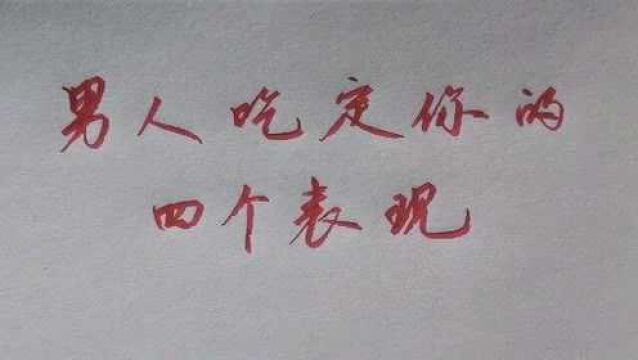 男人吃定你的
四个表现